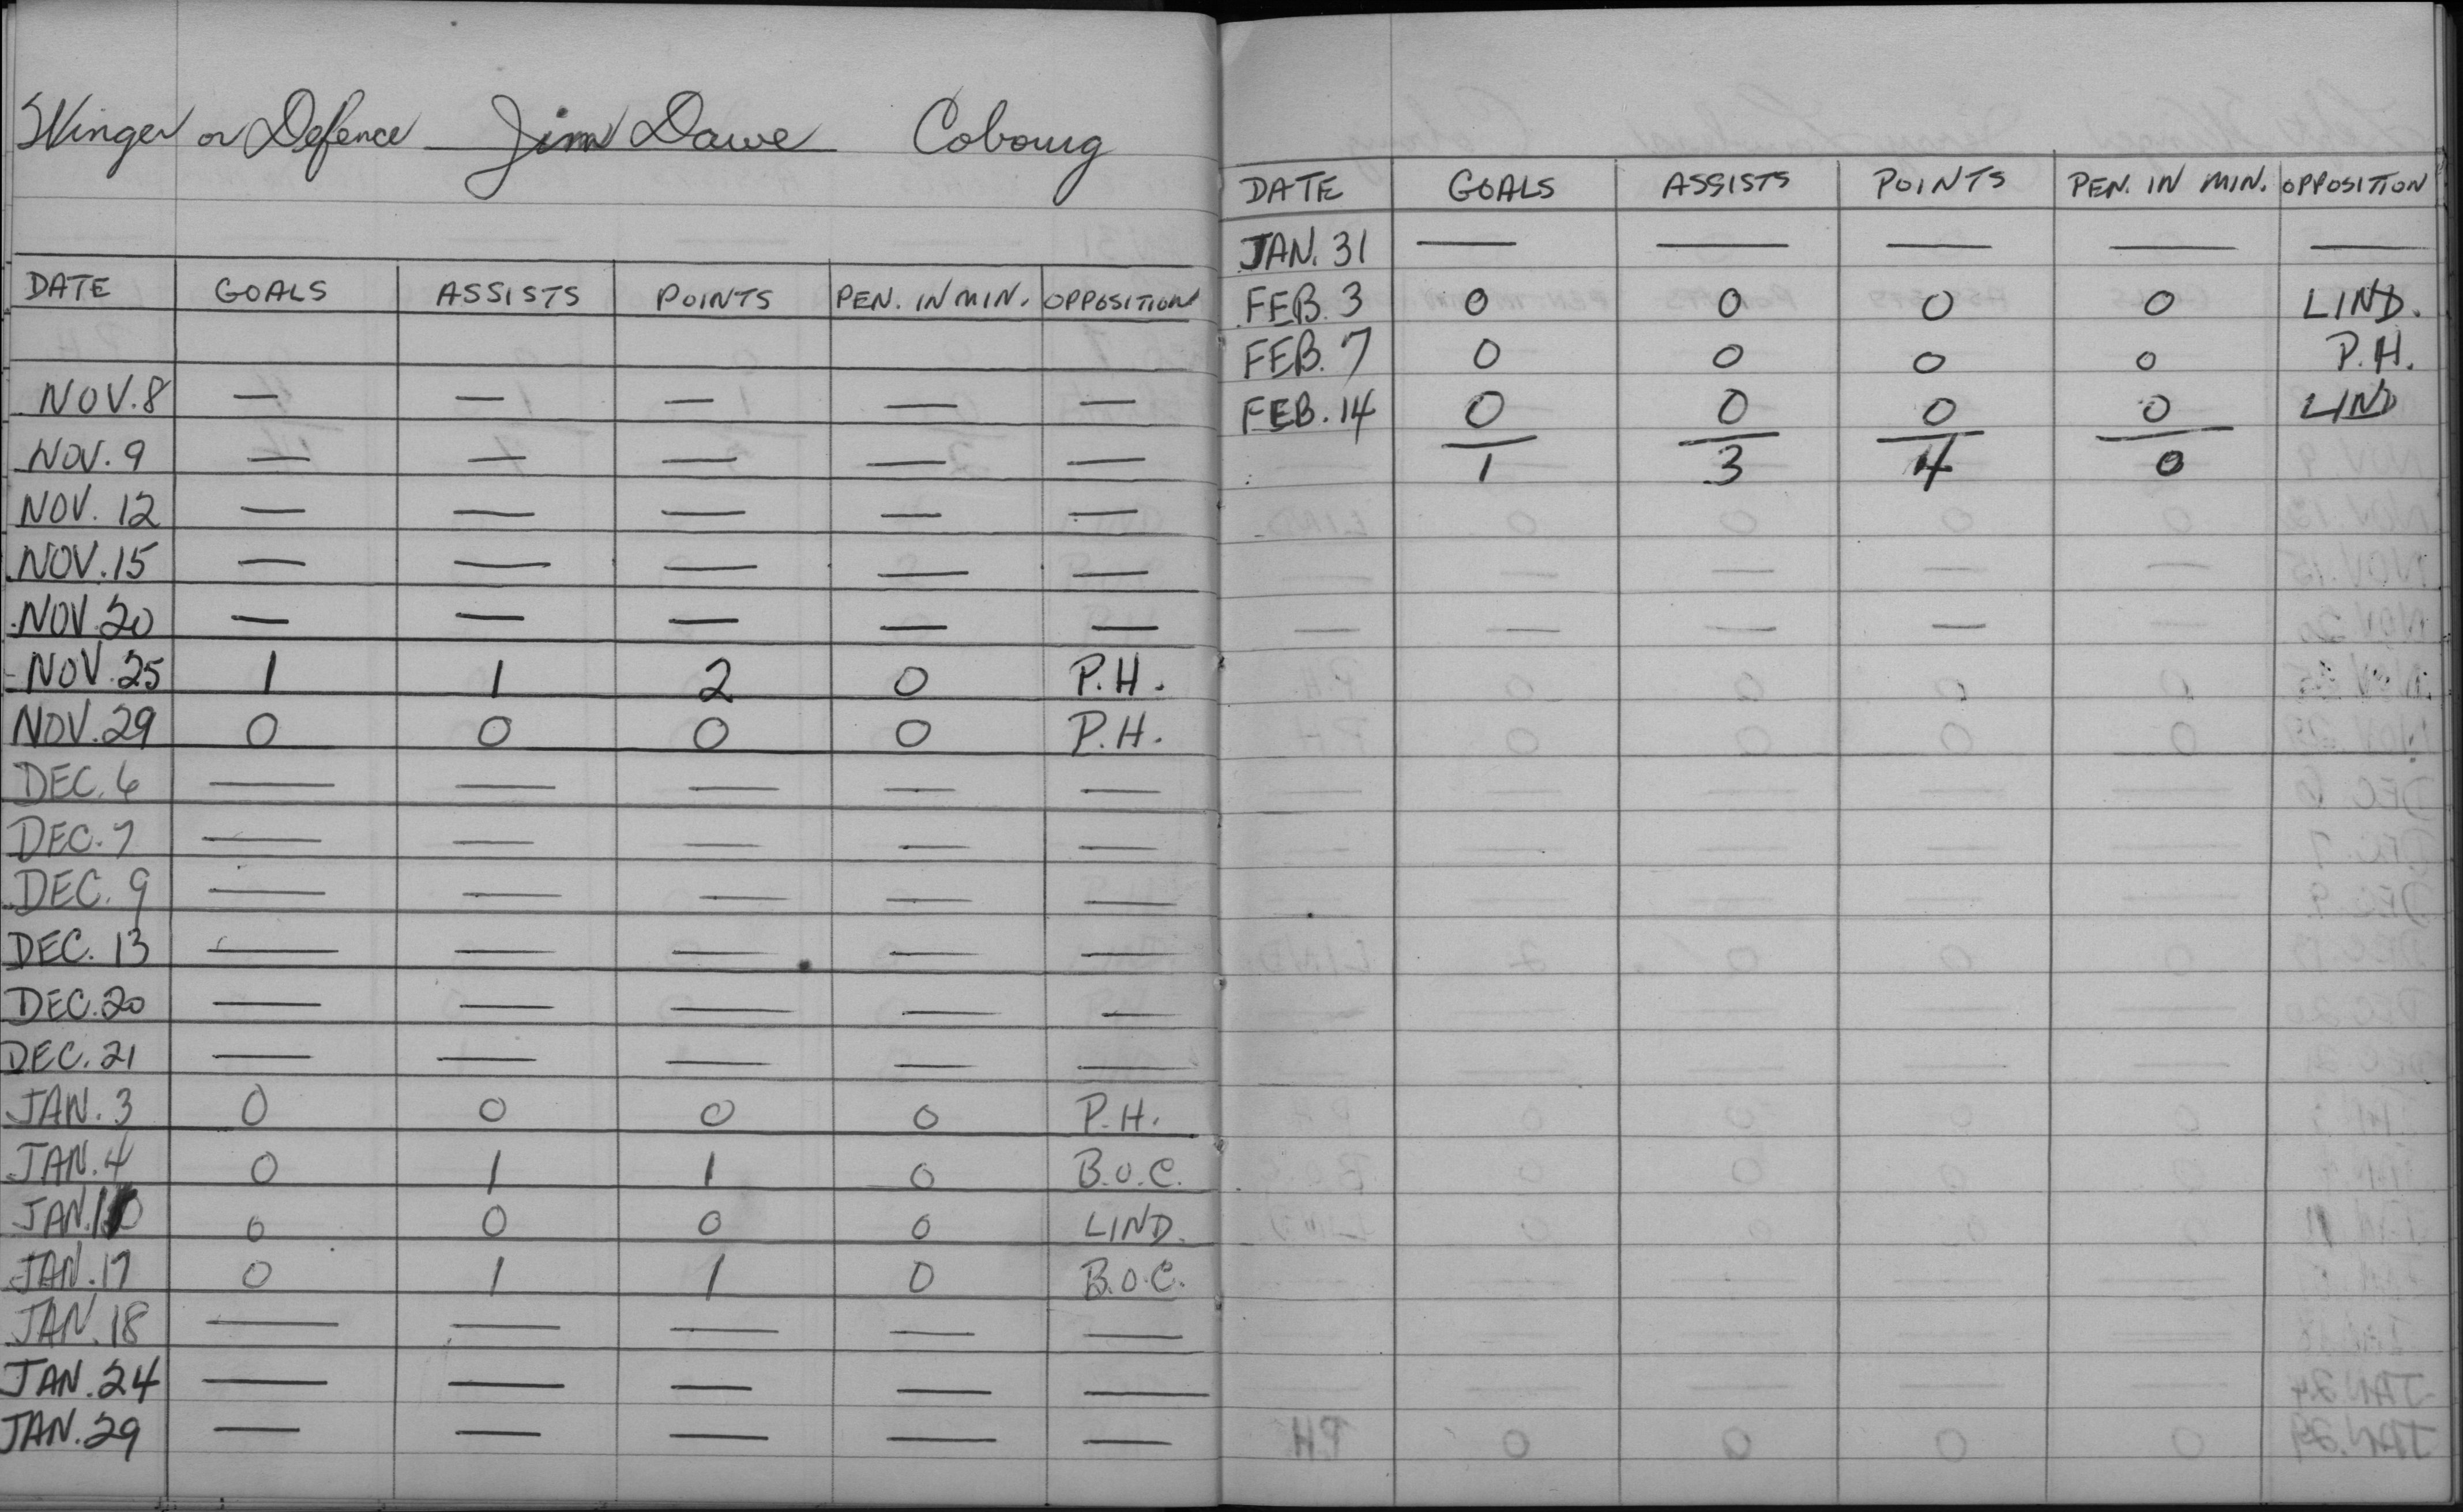 Winger or Defence Jim Dawe Cobourg
DATE GOALS ASSISTS POINTS PEN. IN MIN. OPPOSITION
NOV. 8 — — — — —
NOV. 9 — — — — —
NOV. 12 — — — — —
NOV. 15 — — — — —
NOV. 20 — — — — —
NOV. 25 1 1 2 0 P.H.
NOV. 29 0 0 0 0 P.H.
DEC. 6 — — — — —
DEC. 7 — — — — —
DEC. 9 — — — — —
DEC. 13 — — — — —
DEC. 20 — — — — —
DEC. 21 — — — — —
JAN. 3 0 0 0 0 P.H.
JAN. 4 0 1 1 0 B.O.C.
JAN. 0 0 0 0 LIND.
JAN. 17 0 1 1 0 B.O.C.
JAN. 18 — — — — —
JAN. 24 — — — — —
JAN. 29 — — — — —
DATE GOALS ASSISTS POINTS PEN. IN MIN. OPPOSITION
JAN. 31 — — — — —
FEB. 3 0 0 0 0 LIND.
FEB. 7 0 0 0 0 P.H.
FEB. 14 0 0 0 0 LIND
1 3 4 0